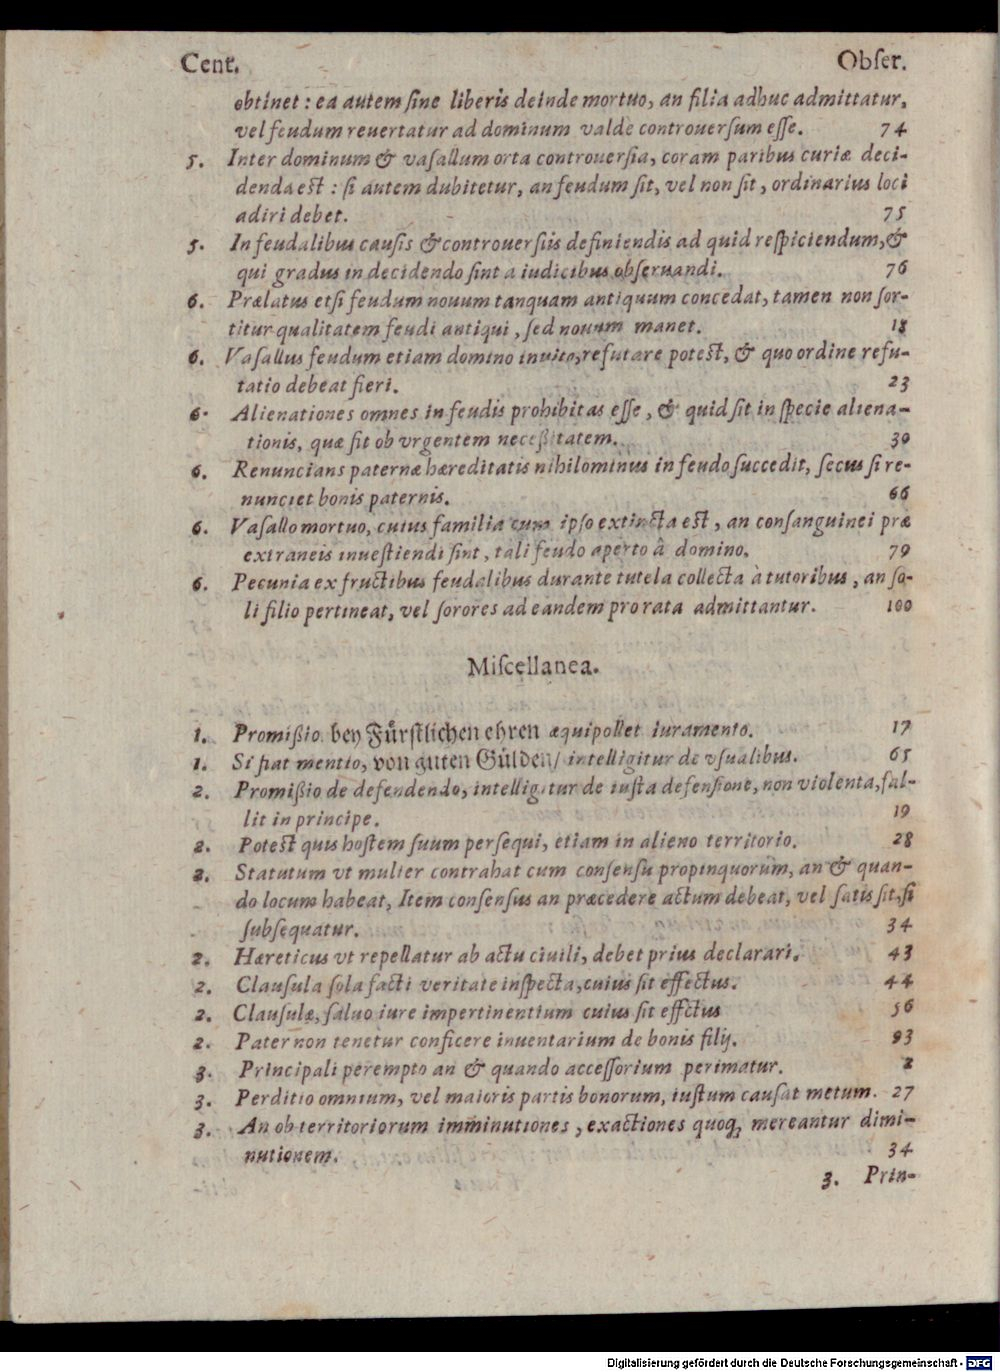 Cent. Obſer.
obtinet : ea autem ſine liberis deinde mortuo, an filia adhuc admittatur,
vel feudum reuertatur ad dominum valde controuerſum eſſe. 74
5. Inter dominum & vaſallum orta controuerſia, coram paribus curiæ deci-
denda est : ſi autem dubitetur, an feudum ſit, vel non ſit, ordinarius loci
adiri debet. 75
5. In feudalibus cauſis & controuerſiis definiendis ad quid reſpiciendum, &
qui gradus in decidendo ſint a iudicibus obſeruandi. 76
6. Prælatus etſi feudum nouum tanquam antiquum concedat, tamen non ſor-
titur qualitatem feudi antiqui, ſed nouum manet. 18
6. Vaſallus feudum etiam domino inuito, refutare potest, & quo ordine refu-
tatio debeat fieri. 23
6. Alienationes omnes in feudis prohibitas eſſe, & quid ſit in ſpecie aliena-
tionis, quæ ſit ob vrgentem neceßitatem. 30
6. Renuncians paternæ hæreditatis nihilominus in feudo ſuccedit, ſecus ſi re-
nunciet bonis paternis. 66
6. Vaſallo mortuo, cuius familia cum ipſo extincta est, an conſanguinei præ
extraneis inueſtiendi ſint, tali feudo aperto â domino. 79
6. Pecunia ex fructibus feudalibus durante tutela collecta à tutoribus, an ſo-
li filio pertineat, vel ſorores ad eandem pro rata admittantur. 100
Miſcellanea.
1. Promißio bey Fürſtlichen ehren æquipollet iuramento. 17
1. Si fiat mentio, von guten Gülden/ intelligitur de vſualibus. 65
2. Promißio de defendendo, intelligitur de iuſta defenſione, non violenta, fal-
lit in principe. 19
2. Potest quis hoſtem ſuum perſequi, etiam in alieno territorio. 28
2. Statutum vt mulier contrahat cum conſenſu propinquorum, an & quan-
do locum habeat, Item conſenſus an præcedere actum debeat, vel ſatis ſit, ſi
ſubſequatur. 34
2. Hæreticus vt repellatur ab actu ciuili, debet prius declarari. 43
2. Clauſula ſola facti veritate inſpecta, cuius ſit effectus. 44
2. Clauſulæ, ſaluo iure impertinentium cuius ſit effctus 56
2. Pater non tenetur conficere inuentarium de bonis filij. 93
3. Principali perempto an & quando acceſſorium perimatur. 2
3. Perditio omnium, vel maioris partis bonorum, iuſtum cauſat metum. 27
3. An ob territoriorum imminutiones, exactiones quoq, mereantur dimi-
nutionem. 34
3. Prin-
Digitalisierung gefördert durch die Deutsche Forschungsgemeinschaft - DFG